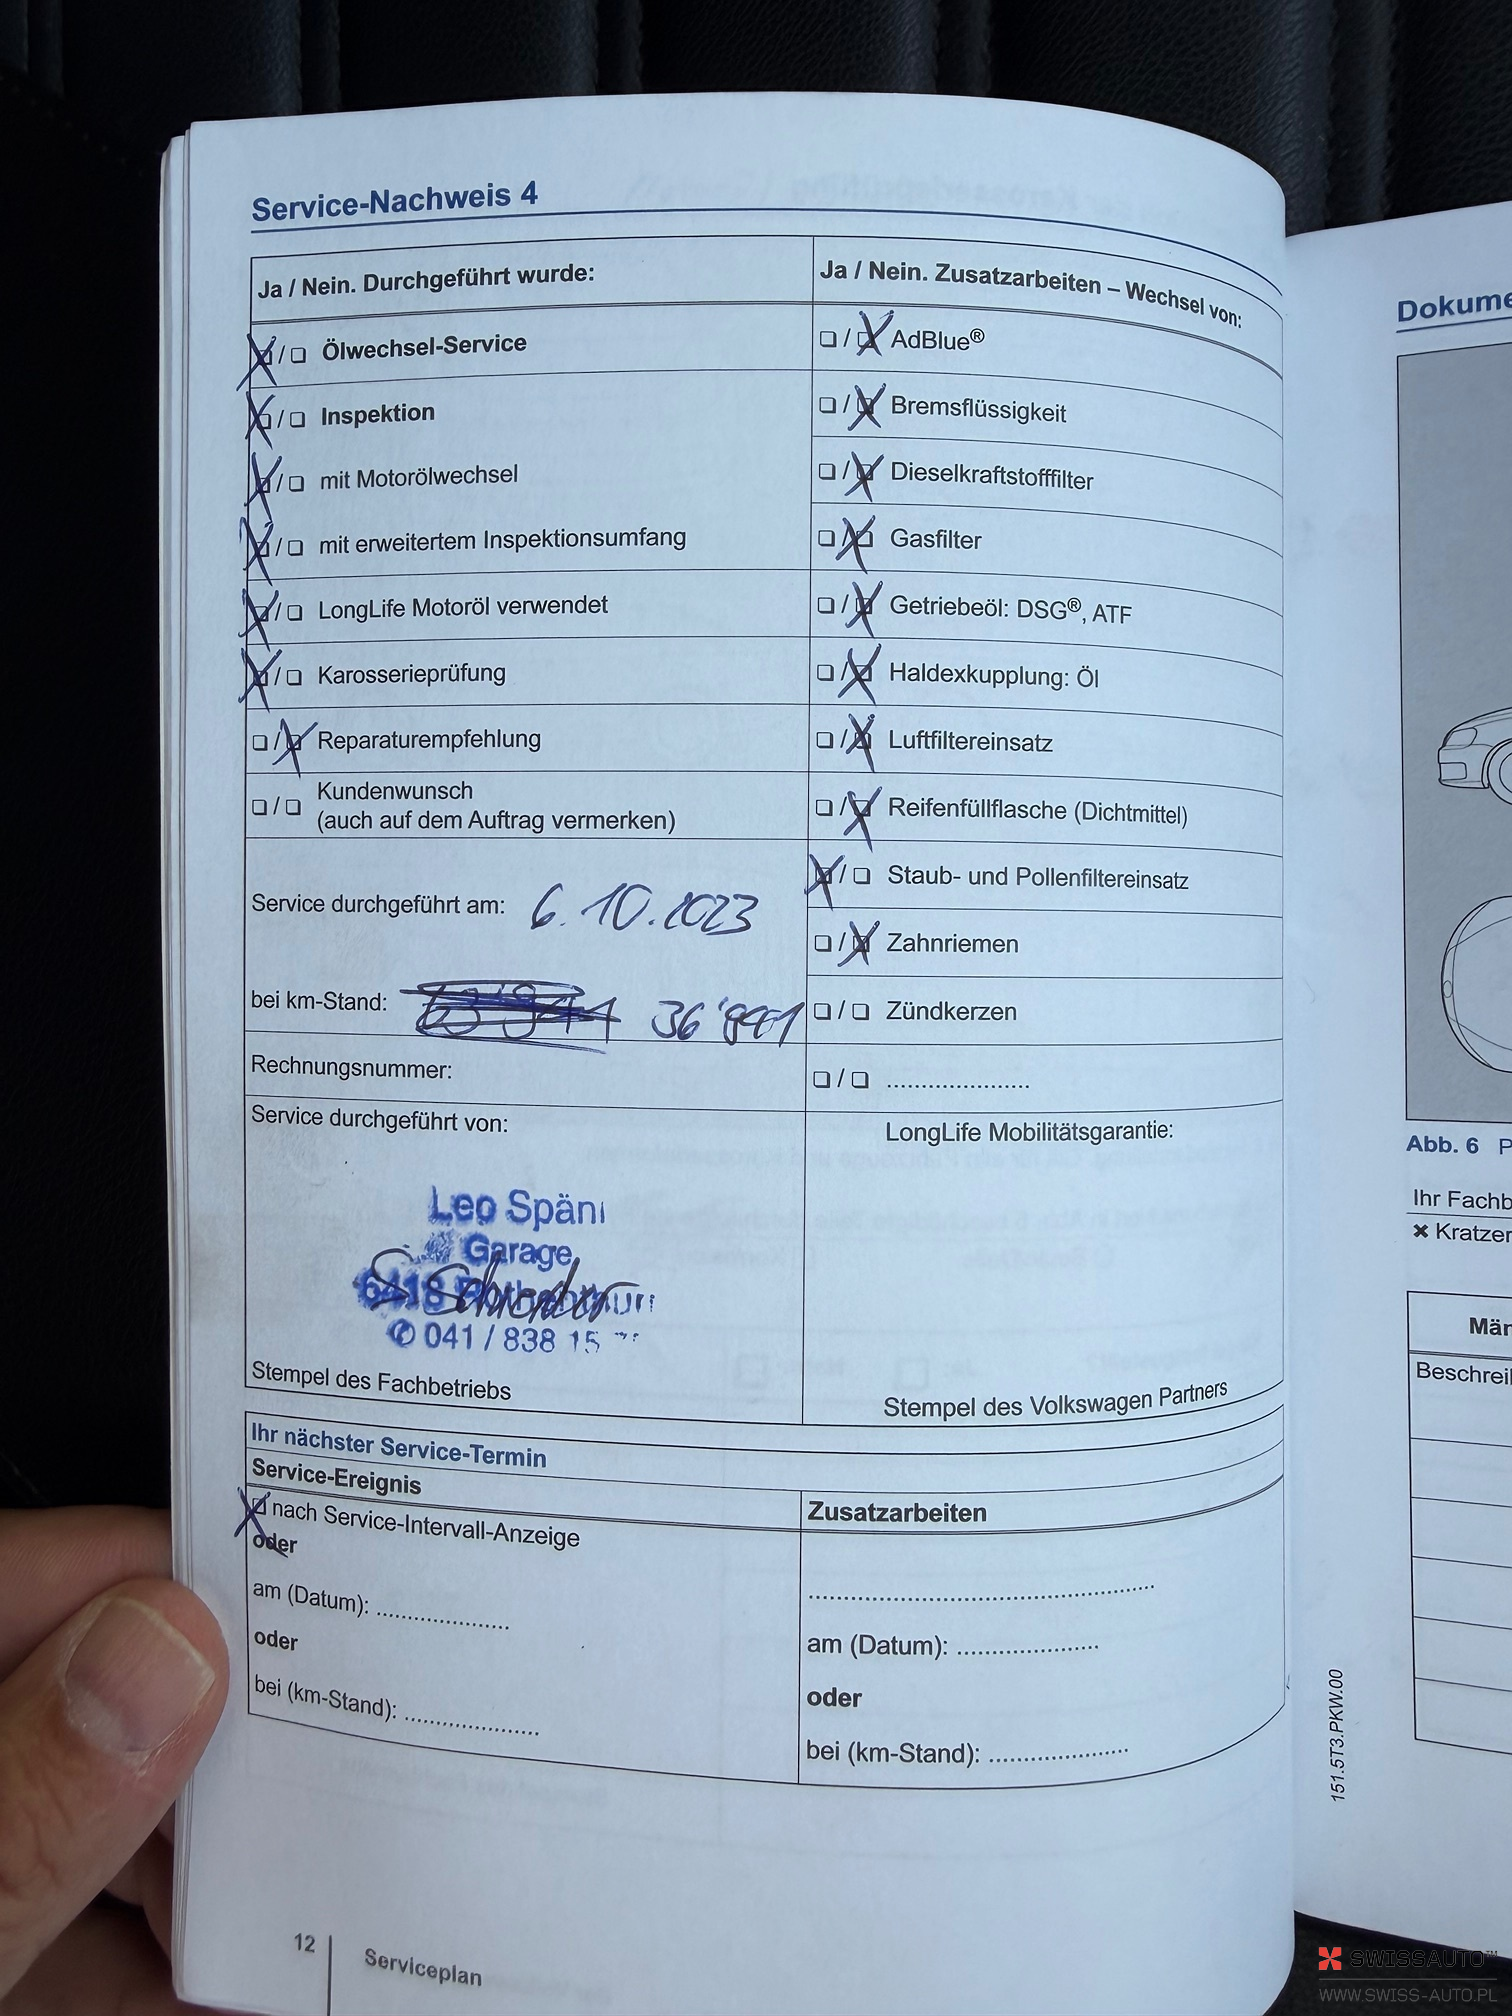 Service-Nachweis 4
Ja / Nein. Durchgeführt wurde:
❏ / ❏ Ölwechsel-Service
❏ / ❏ Inspektion
❏ / ❏ mit Motorölwechsel
❏ / ❏ mit erweitertem Inspektionsumfang
❏ / ❏ LongLife Motoröl verwendet
❏ / ❏ Karosserieprüfung
❏ / ❏ Reparaturempfehlung
❏ / ❏ Kundenwunsch
(auch auf dem Auftrag vermerken)
Service durchgeführt am: 6.10.2023
bei km-Stand: 36'
Rechnungsnummer:
Service durchgeführt von:
Leo Späni
Garage
6418
✆ 041 / 838 15
Stempel des Fachbetriebs
Ja / Nein. Zusatzarbeiten – Wechsel von:
❏ / ❏ AdBlue®
❏ / ❏ Bremsflüssigkeit
❏ / ❏ Dieselkraftstofffilter
❏ / ❏ Gasfilter
❏ / ❏ Getriebeöl: DSG®, ATF
❏ / ❏ Haldexkupplung: Öl
❏ / ❏ Luftfiltereinsatz
❏ / ❏ Reifenfüllflasche (Dichtmittel)
❏ / ❏ Staub- und Pollenfiltereinsatz
❏ / ❏ Zahnriemen
❏ / ❏ Zündkerzen
❏ / ❏ .....................
LongLife Mobilitätsgarantie:
Stempel des Volkswagen Partners
Ihr nächster Service-Termin
Service-Ereignis
❏ nach Service-Intervall-Anzeige
oder
am (Datum): ....................
oder
bei (km-Stand): ....................
Zusatzarbeiten
..................................................
am (Datum): .....................
oder
bei (km-Stand): .....................
12
Serviceplan
151.5T3.PKW.00
Dokume
Abb. 6 P
Ihr Fachb
✖ Kratzer
Män
Beschrei
SWISSAUTO™
WWW.SWISS-AUTO.PL